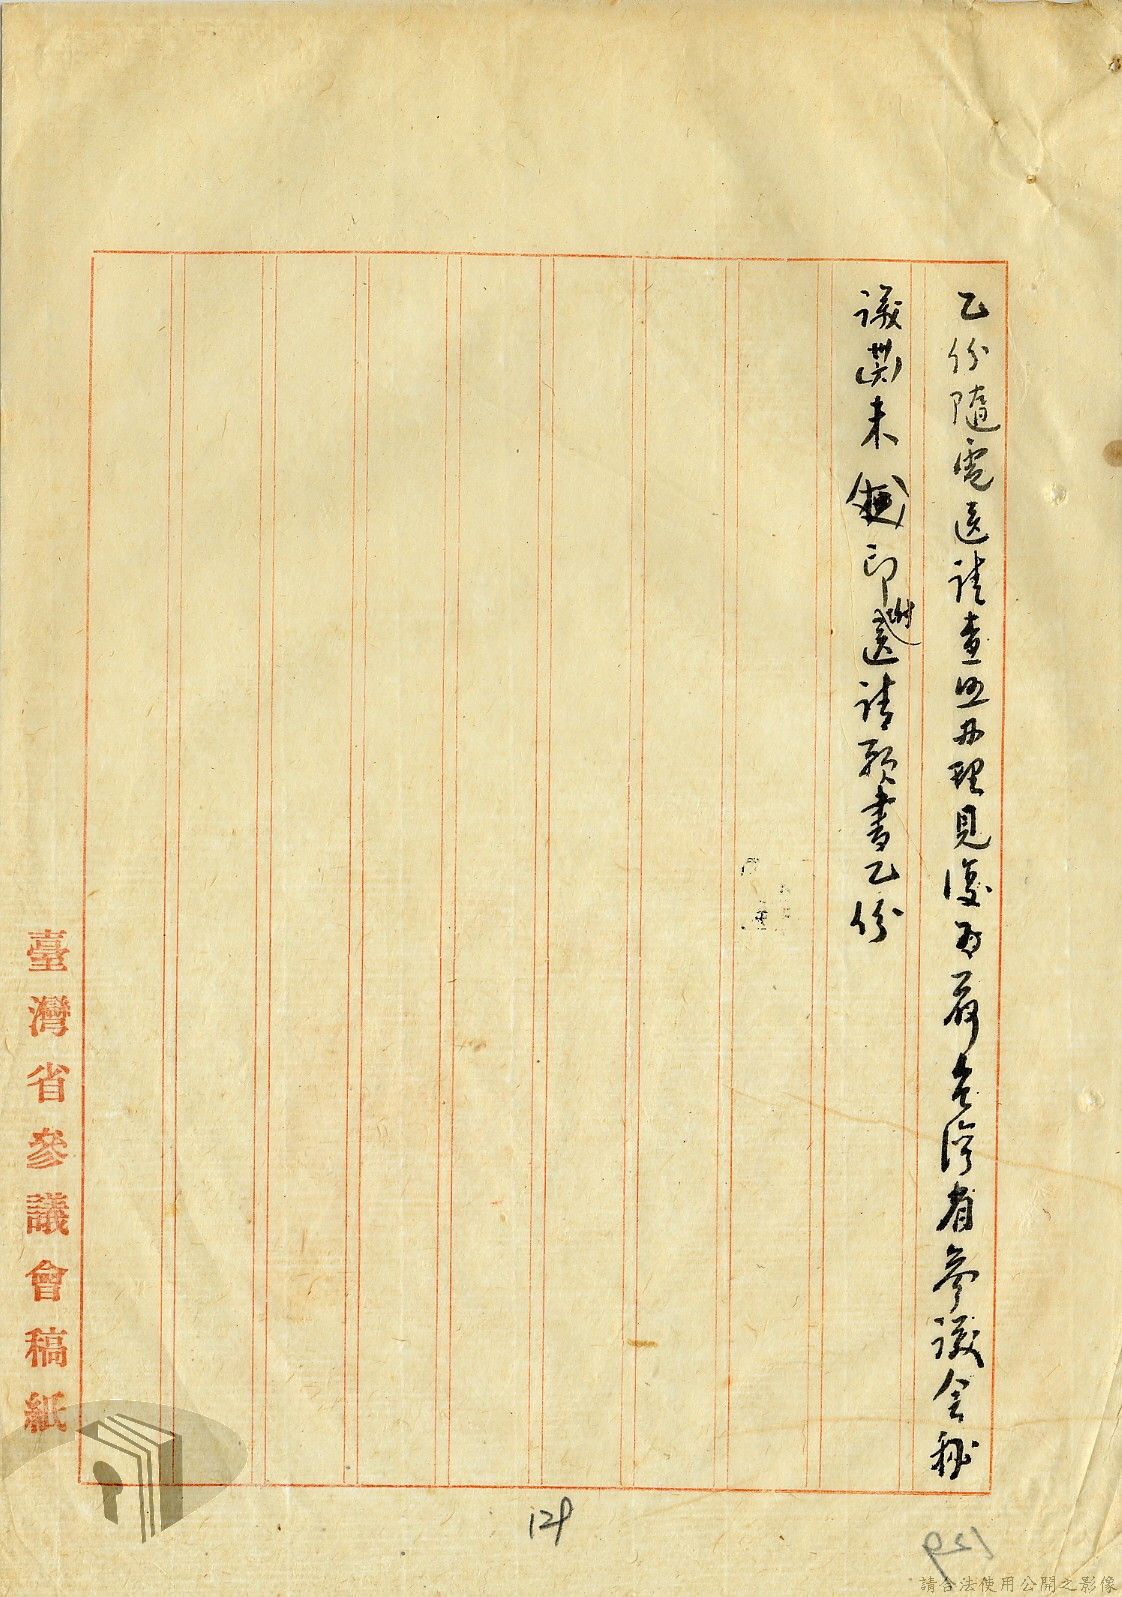 乙份隨電送請查照办理見復為荷台湾省参议会秘
议(世)未 印附送請願書乙份
臺灣省參議會稿紙
129
129
請合法使用公開之影像